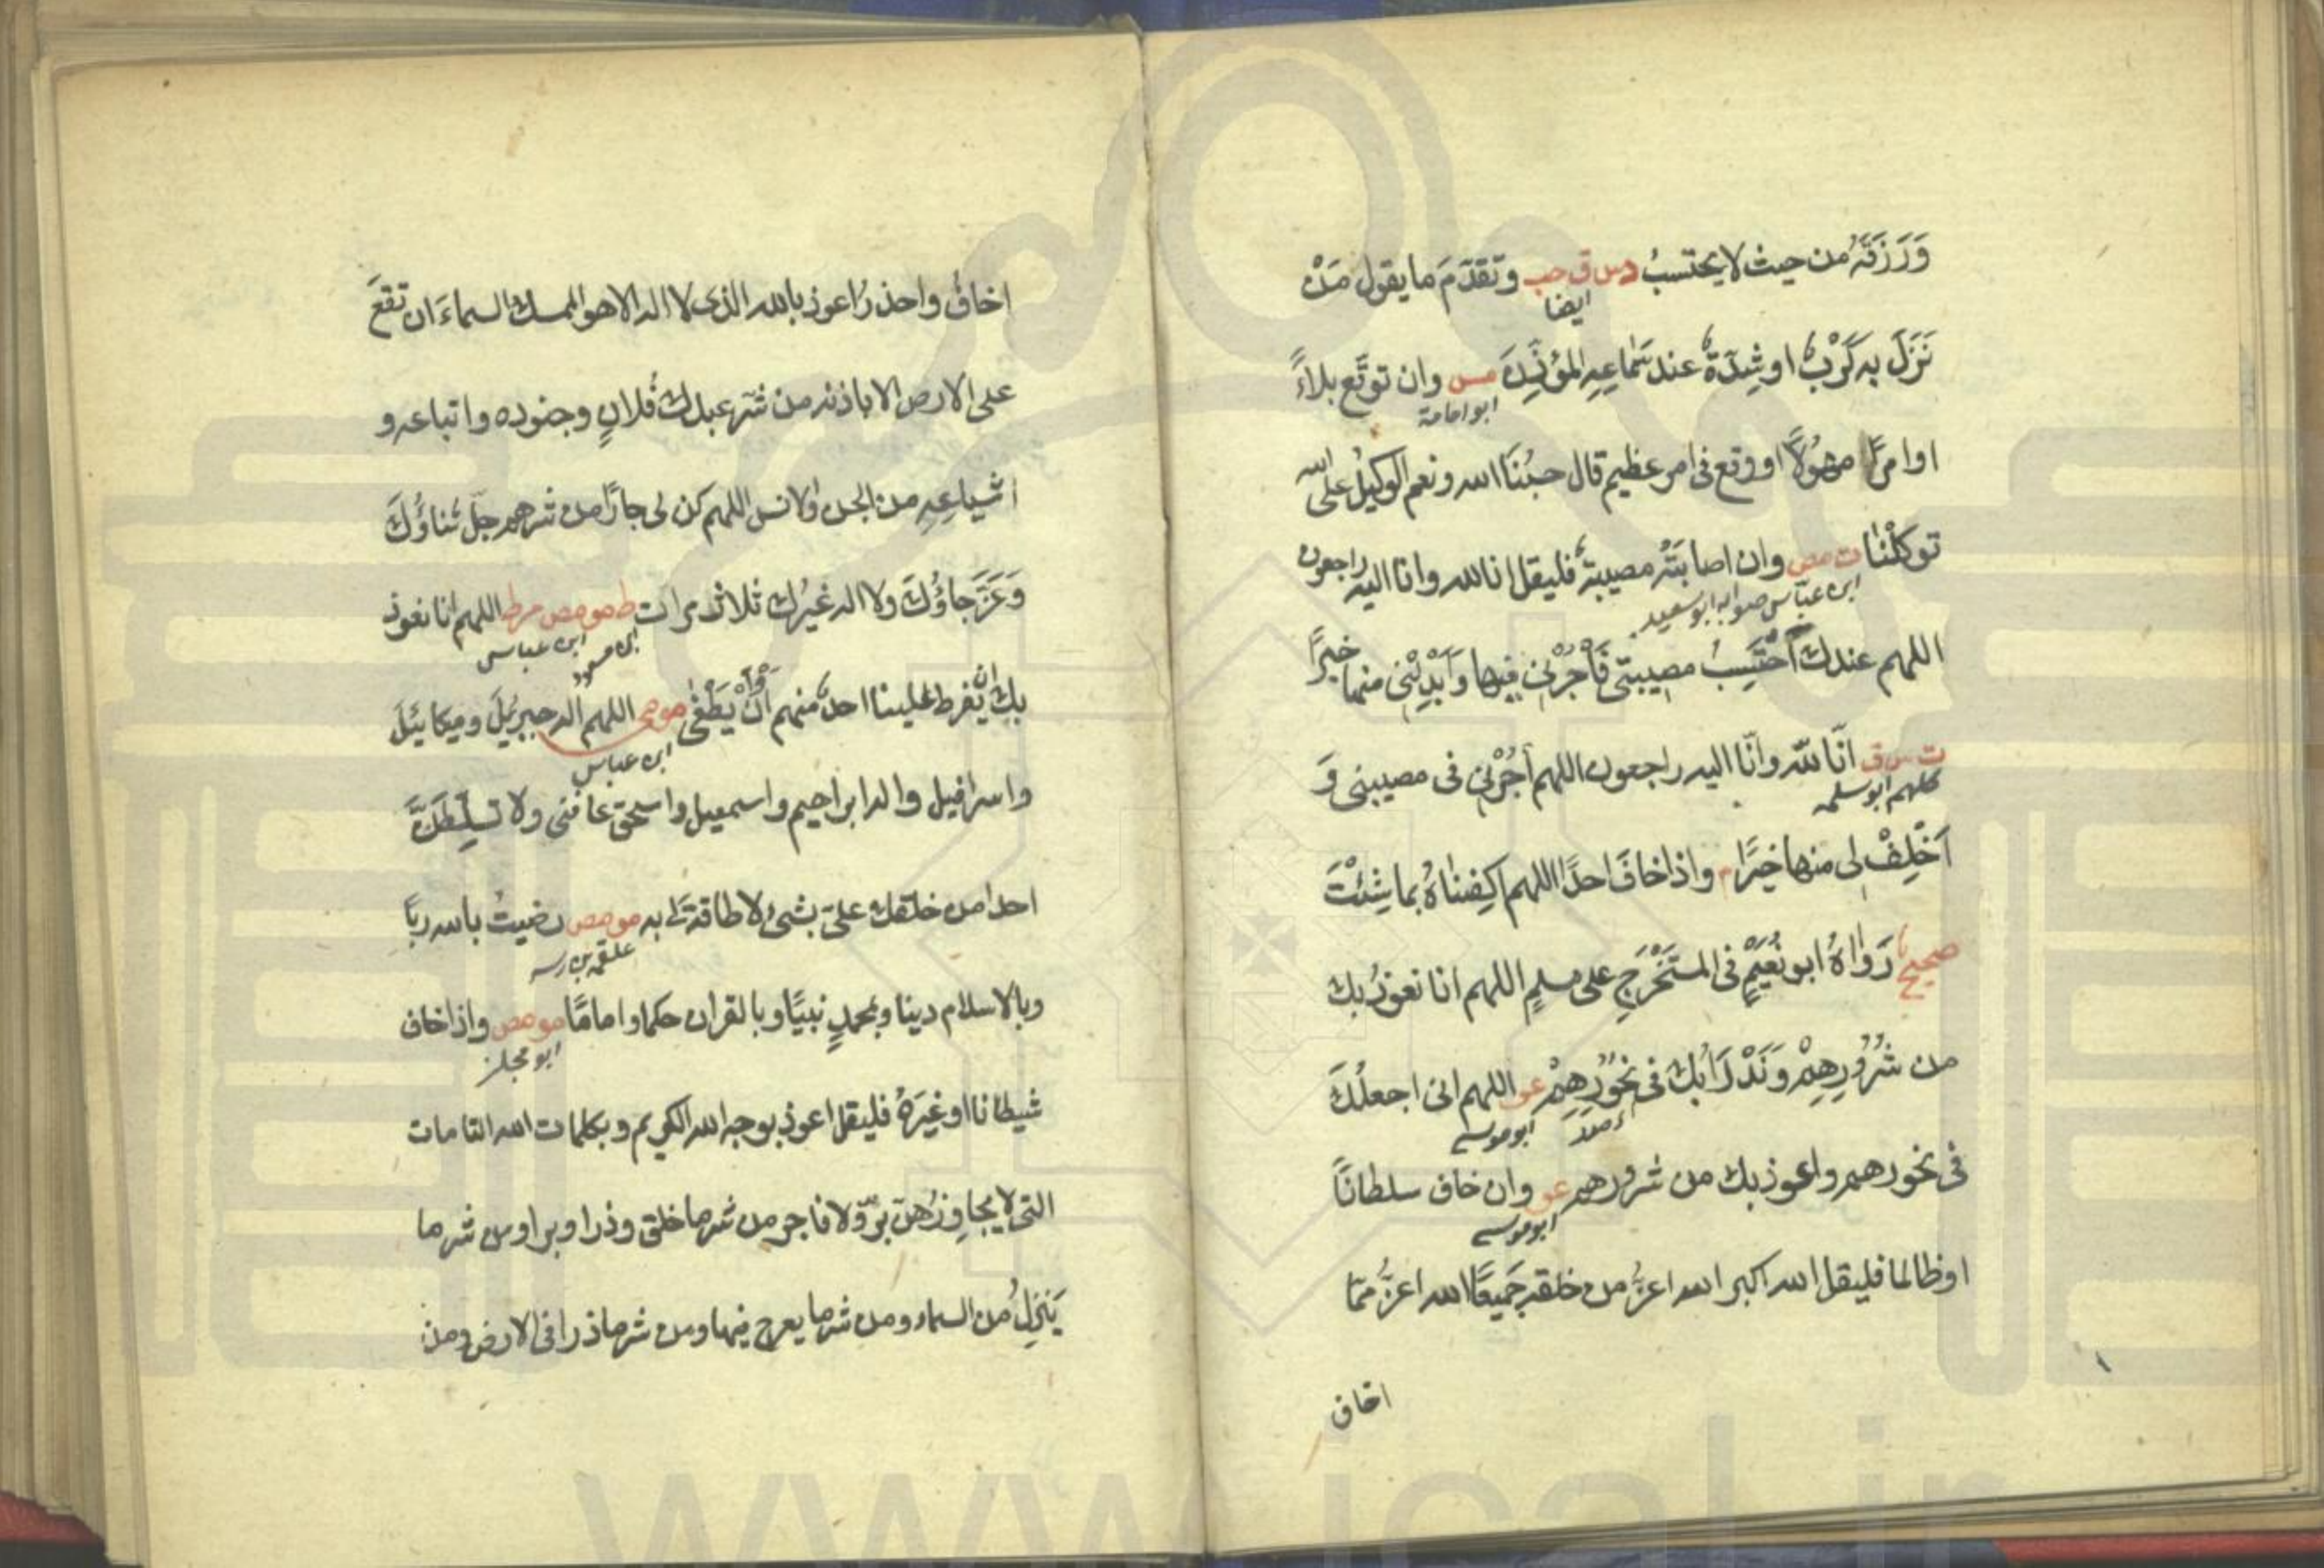 وَرَزَقَهُ من حيث لا يحتسبُ دس ق حب وتَقَدَّمَ ما يقول مَنْ
ايضا
نَزَلَ به كَرْبٌ او شِدَّةٌ عند سَماعِهِ المؤذّنَ مس وان توقّع بلاءً
ابو امامة
او امرًا مهُولًا او وقع فى امر عظيم قال حسبُنَا الله ونعم الوكيلُ على الله
توكّلْنٰا ت مص وان اصابَتْهُ مصيبةٌ فليقل انا لله وانا اليه راجعون
ابن عبّاس صوابه ابو سعيد
اللهم عندك اَحْتَسِبُ مصيبتى فَأْجُرْنى فيها وَاَبْدِلْنى منها خيرًا
ت س ق انّا للّه وانّا اليه راجعون اللهم أجُرْنى فى مصيبتى وَ
كلهم ابو سلمه
اَخْلِفْ لى منها خيرًا م واذا خافَ احدًا اللهم اكفِناهُ بما شِئْتَ
صحيحٌ رَوَاهُ ابو نُعَيْمٍ فى المستَخْرَجِ على مسلمٍ اللهم انا نعوذُ بك
من شُرُورِهِمْ وَنَدْرَاُبكَ فى نُحُورِهِمْ عو اللهم انى اجعلُكَ
ابو موسى
فى نحورهم واعوذ بك من شرورهم عو وان خاف سلطانًا
ابو موسى
او ظالما فليقل الله اكبر الله اعزُّ من خلقه جَميعًا الله اعزُّ ممّا
اخاف
اخافُ واحذرُ اعوذ بالله الذى لا اله الا هو الممسك السماءَ ان تقعَ
على الارض الا باذنه من شرّ عبدك فُلانٍ وجنوده واتباعه و
اشياعِهِ من الجن والانس اللهم كن لى جارًا من شرهم جلّ ثناؤُكَ
وَعَزَّ جاؤُكَ ولا اله غيرُك ثلاث مرات ط مو مص مر ط اللهم انا نعوذ
ابن مسعود ابن عباس
بك ان يَّفرط علينا احدٌ منهم اَوْ اَنْ يَطْغٰى مو مص اللهم اله جبريُلَ وميكائيلَ
ابن عباس
واسرافيل واله ابراهيم واسمعيل واسحق عافنى ولا تسلِّطَنَّ
احدا من خلقك علىّ بشئ لا طاقةَ لى به مو مص رضيتُ بالله ربًّا
وبالاسلام دينا وبمحمدٍ نبيًّا وبالقران حكما واماماً مو مص واذا خاف
ابو مجلز
شيطانا او غيرَهُ فليقل اعوذ بوجه الله الكريم وبكلمات الله التامات
التى لا يجاوِزُهنّ بَرٌّ ولا فاجر من شر ما خلق وذرا وبرا ومن شر ما
يَنزِلُ من السماء ومن شر ما يعرج فيها ومن شر ما ذرا فى الارض ومن